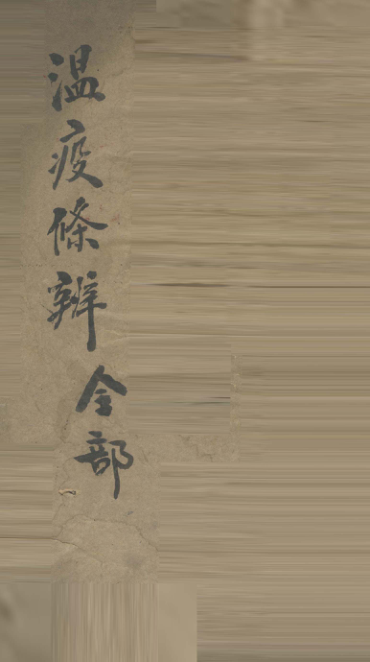 温疫條辨全部